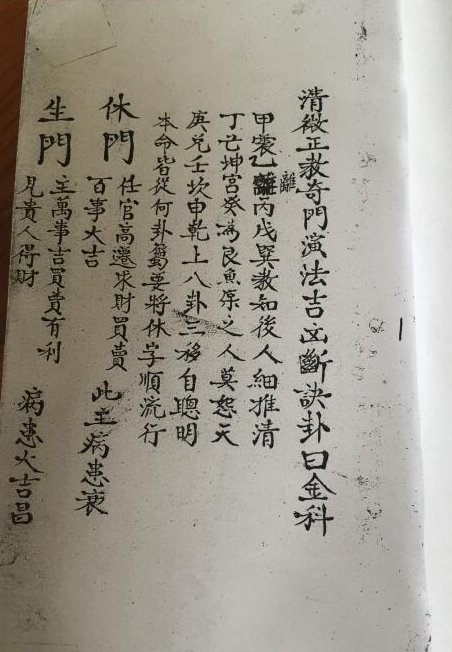 清微正教奇門演法吉凶斷訣卦曰金科
甲震乙離丙戌巽教知後人細推清
離
丁亡坤宮癸為艮魚原之人莫怨天
庚兌壬坎申乾上八卦三移自聰明
本命皆從何卦籌要將休字順流行
休門 任官高遷求財買賣
百事大吉 此主病患衰
生門 主萬事吉買賣有利
見貴人得財 病患大吉昌